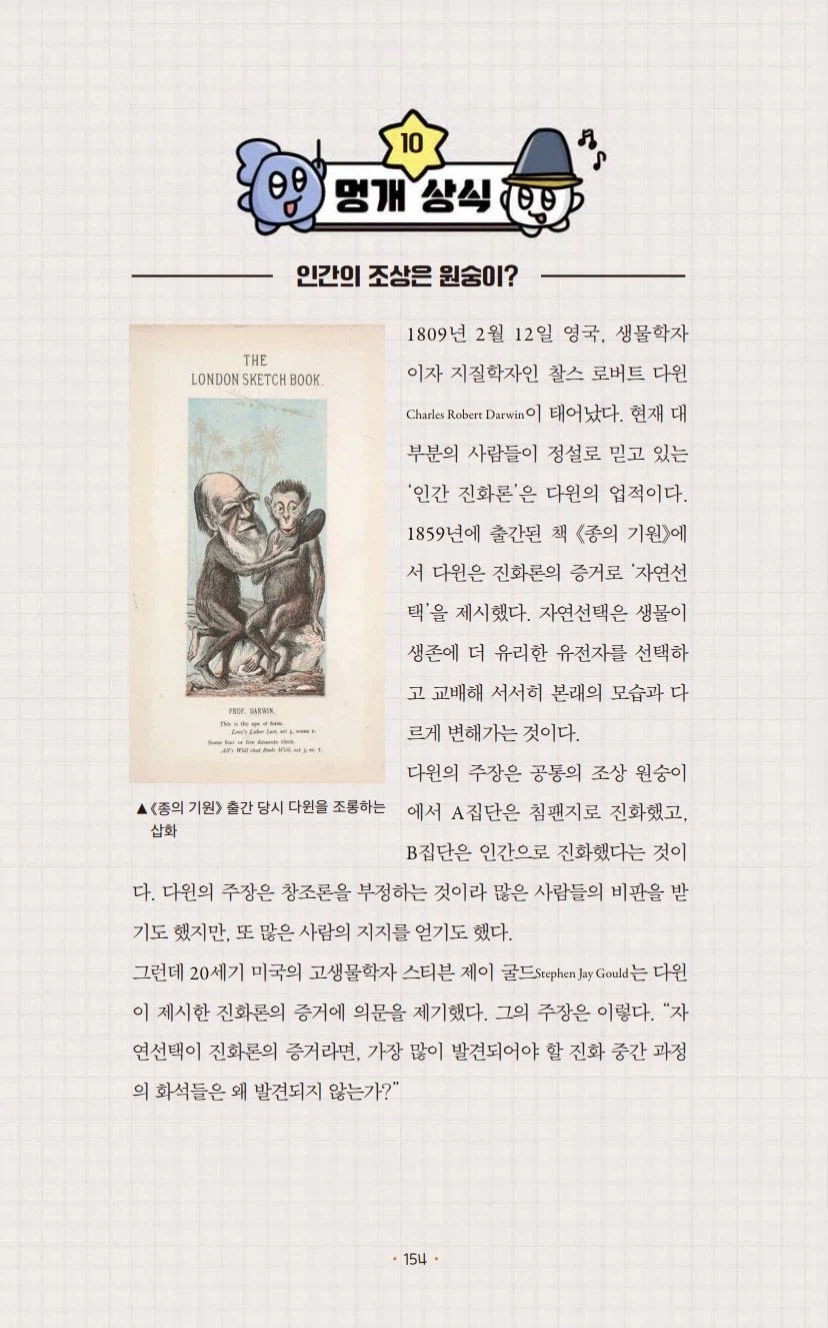 10
멍개 상식
인간의 조상은 원숭이?
THE
LONDON SKETCH BOOK.
PROF. DARWIN.
This is the ape of form.
Love's Labor Lost, act 5, scene 2.
Some four or five descents since.
All's Well that Ends Well, act 3, sc. 7.
▲《종의 기원》 출간 당시 다윈을 조롱하는
삽화
1809년 2월 12일 영국, 생물학자
이자 지질학자인 찰스 로버트 다윈
Charles Robert Darwin이 태어났다. 현재 대
부분의 사람들이 정설로 믿고 있는
‘인간 진화론’은 다윈의 업적이다.
1859년에 출간된 책 《종의 기원》에
서 다윈은 진화론의 증거로 ‘자연선
택’을 제시했다. 자연선택은 생물이
생존에 더 유리한 유전자를 선택하
고 교배해 서서히 본래의 모습과 다
르게 변해가는 것이다.
다윈의 주장은 공통의 조상 원숭이
에서 A집단은 침팬지로 진화했고,
B집단은 인간으로 진화했다는 것이
다. 다윈의 주장은 창조론을 부정하는 것이라 많은 사람들의 비판을 받
기도 했지만, 또 많은 사람의 지지를 얻기도 했다.
그런데 20세기 미국의 고생물학자 스티븐 제이 굴드Stephen Jay Gould는 다윈
이 제시한 진화론의 증거에 의문을 제기했다. 그의 주장은 이렇다. “자
연선택이 진화론의 증거라면, 가장 많이 발견되어야 할 진화 중간 과정
의 화석들은 왜 발견되지 않는가?”
154